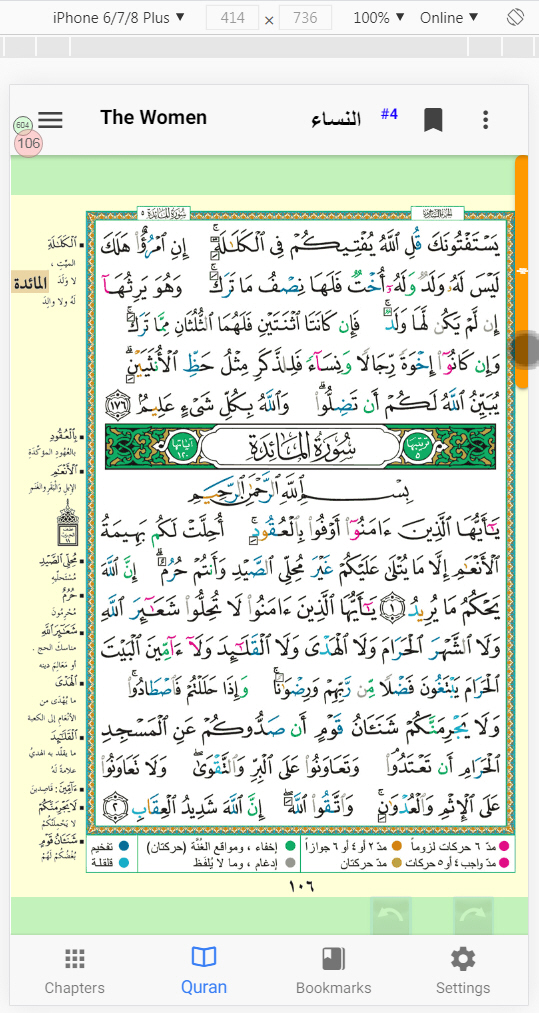 iPhone 6/7/8 Plus ▼ 414 × 736 100% ▼ Online ▼
604
106
The Women النساء #4
سُورَةُ المَائِدَة ٥
يَسْتَفْتُونَكَ قُلِ ٱللَّهُ يُفْتِيكُمْ فِى ٱلْكَلَـٰلَةِ ۚ إِنِ ٱمْرُؤٌا۟ هَلَكَ
لَيْسَ لَهُۥ وَلَدٌ وَلَهُۥٓ أُخْتٌ فَلَهَا نِصْفُ مَا تَرَكَ ۚ وَهُوَ يَرِثُهَآ
إِن لَّمْ يَكُن لَّهَا وَلَدٌ ۚ فَإِن كَانَتَا ٱثْنَتَيْنِ فَلَهُمَا ٱلثُّلُثَانِ مِمَّا تَرَكَ ۚ
وَإِن كَانُوٓا۟ إِخْوَةً رِّجَالًا وَنِسَآءً فَلِلذَّكَرِ مِثْلُ حَظِّ ٱلْأُنثَيَيْنِ ۗ
يُبَيِّنُ ٱللَّهُ لَكُمْ أَن تَضِلُّوا۟ ۗ وَٱللَّهُ بِكُلِّ شَىْءٍ عَلِيمٌۢ ١٧٦
ترتيبها ٥ سُورَةُ المَائِدَة آياتها ١٢٠
بِسْمِ ٱللَّهِ ٱلرَّحْمَـٰنِ ٱلرَّحِيمِ
يَـٰٓأَيُّهَا ٱلَّذِينَ ءَامَنُوٓا۟ أَوْفُوا۟ بِٱلْعُقُودِ ۚ أُحِلَّتْ لَكُم بَهِيمَةُ
ٱلْأَنْعَـٰمِ إِلَّا مَا يُتْلَىٰ عَلَيْكُمْ غَيْرَ مُحِلِّى ٱلصَّيْدِ وَأَنتُمْ حُرُمٌ ۗ إِنَّ ٱللَّهَ
يَحْكُمُ مَا يُرِيدُ ١ يَـٰٓأَيُّهَا ٱلَّذِينَ ءَامَنُوا۟ لَا تُحِلُّوا۟ شَعَـٰٓئِرَ ٱللَّهِ
وَلَا ٱلشَّهْرَ ٱلْحَرَامَ وَلَا ٱلْهَدْىَ وَلَا ٱلْقَلَـٰٓئِدَ وَلَآ ءَآمِّينَ ٱلْبَيْتَ
ٱلْحَرَامَ يَبْتَغُونَ فَضْلًا مِّن رَّبِّهِمْ وَرِضْوَٰنًا ۚ وَإِذَا حَلَلْتُمْ فَٱصْطَادُوا۟ ۚ
وَلَا يَجْرِمَنَّكُمْ شَنَـَٔانُ قَوْمٍ أَن صَدُّوكُمْ عَنِ ٱلْمَسْجِدِ
ٱلْحَرَامِ أَن تَعْتَدُوا۟ ۘ وَتَعَاوَنُوا۟ عَلَى ٱلْبِرِّ وَٱلتَّقْوَىٰ ۖ وَلَا تَعَاوَنُوا۟
عَلَى ٱلْإِثْمِ وَٱلْعُدْوَٰنِ ۚ وَٱتَّقُوا۟ ٱللَّهَ ۖ إِنَّ ٱللَّهَ شَدِيدُ ٱلْعِقَابِ ٢
ٱلْكَلَـٰلَةِ
الميّت ،
لا وَلَدَ
لَهُ ولا والِدَ
المائدة
بِٱلْعُقُودِ
بالعُهُودِ المؤكّدَةِ
ٱلْأَنْعَـٰمِ
الإبلِ والبَقَرِ والغَنَمِ
مُحِلِّى ٱلصَّيْدِ
مُسْتَحِلِّيهِ
حُرُمٌ
مُحْرِمُونَ
شَعَـٰٓئِرَ ٱللَّهِ
مناسك الحج .
أو مَعَالِمَ دينِه
ٱلْهَدْىَ
ما يُهْدَى من
الأنْعَامِ إلى الكعبة
ٱلْقَلَـٰٓئِدَ
ما يقلَّد به الهديُ
علامةً لَهُ
ءَآمِّينَ : قاصِدِينَ
لَا يَجْرِمَنَّكُمْ
لا يَحْمِلَنَّكُمْ
شَنَـَٔانُ قَوْمٍ
بُغْضُكُمْ لَهُمْ
مدّ ٦ حركات لزوماً مدّ ٢ أو ٤ أو ٦ جوازاً إخفاء ، ومواقع الغُنَّة (حركتان) تفخيم
مدّ واجب ٤ أو ٥ حركات مدّ حركتان إدغام ، وما لا يُلفَظ قلقلة
١٠٦
Chapters Quran Bookmarks Settings